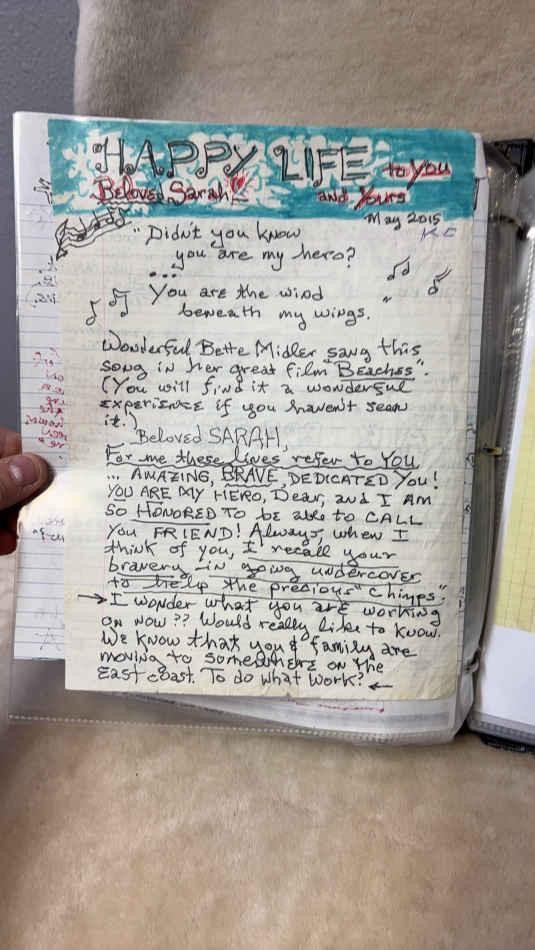 HAPPY LIFE to YOU
Beloved Sarah and Yours
May 2015
"Didn't you know
you are my hero?
...
You are the wind
beneath my wings.
Wonderful Bette Midler sang this
song in her great film "Beaches".
(You will find it a wonderful
experience if you haven't seen
it.)
Beloved SARAH,
For me these lines refer to YOU
... AMAZING, BRAVE, DEDICATED YOU!
YOU ARE MY HERO, Dear, and I AM
SO HONORED TO be able to CALL
YOU FRIEND! Always, when I
think of you, I recall your
bravery in going undercover
to help the precious "chimps".
→ I wonder what you are working
on now?? Would really like to know.
We know that you & family are
moving to somewhere on the
East coast. To do what work? ←